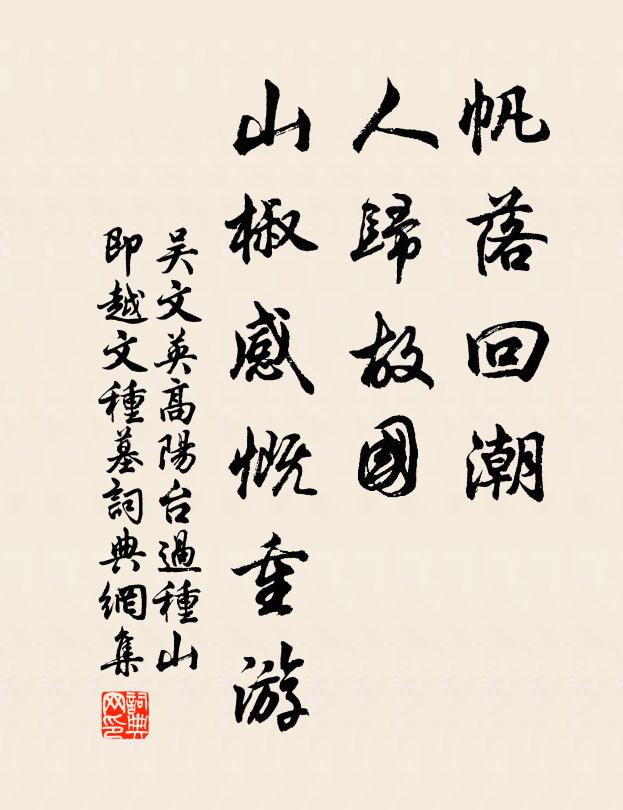 帆落回潮
人歸故國
山椒感慨重游
吴文英高陽台過種山
即越文種墓詞典網集
詞典网印